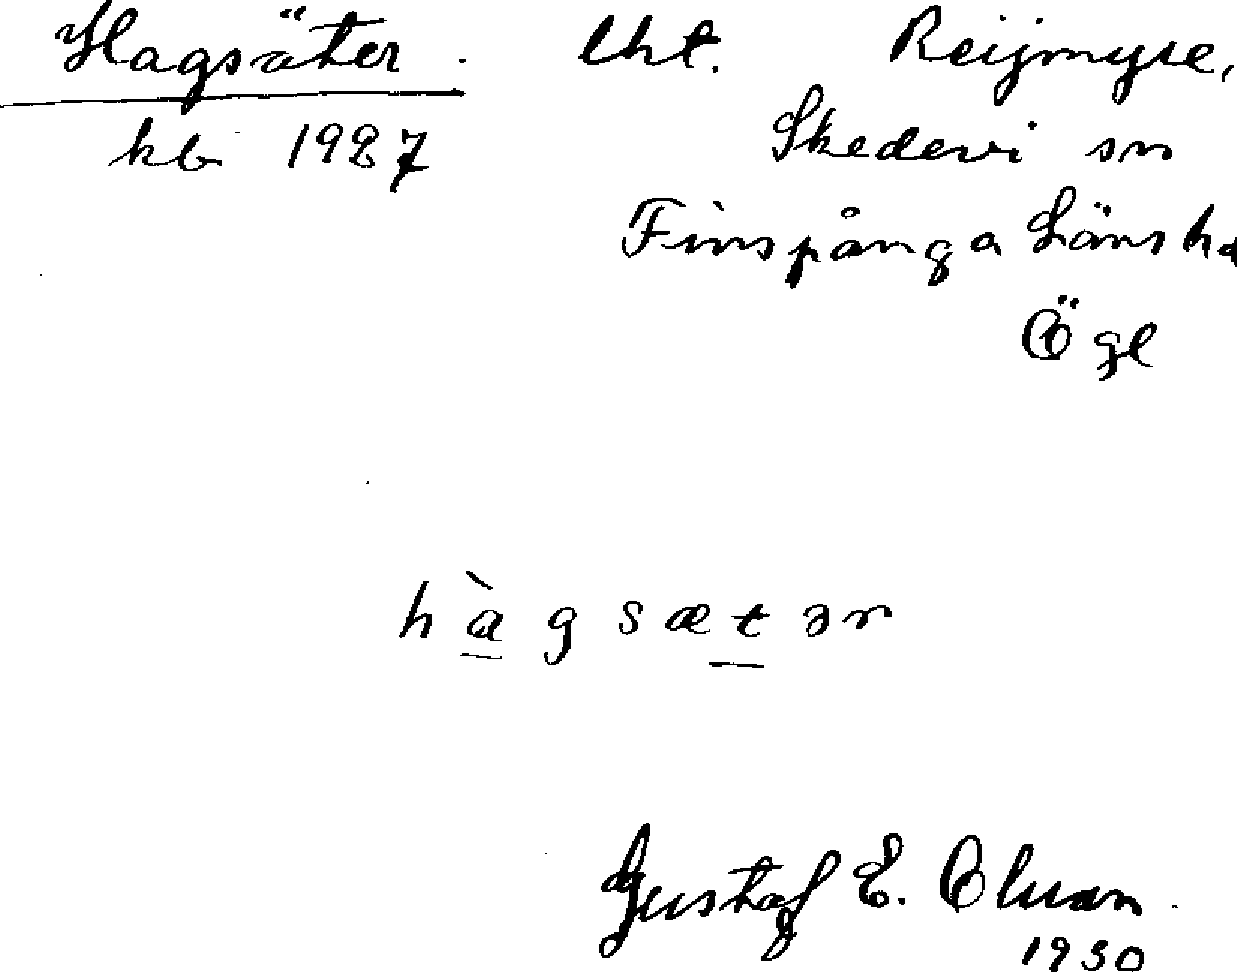 Hagsäter. lht. Reijmyre,
kb 1927 Skedevi sn
Finspånga Läns hd
Ögl
hàgsætər
Gustaf E.
1930